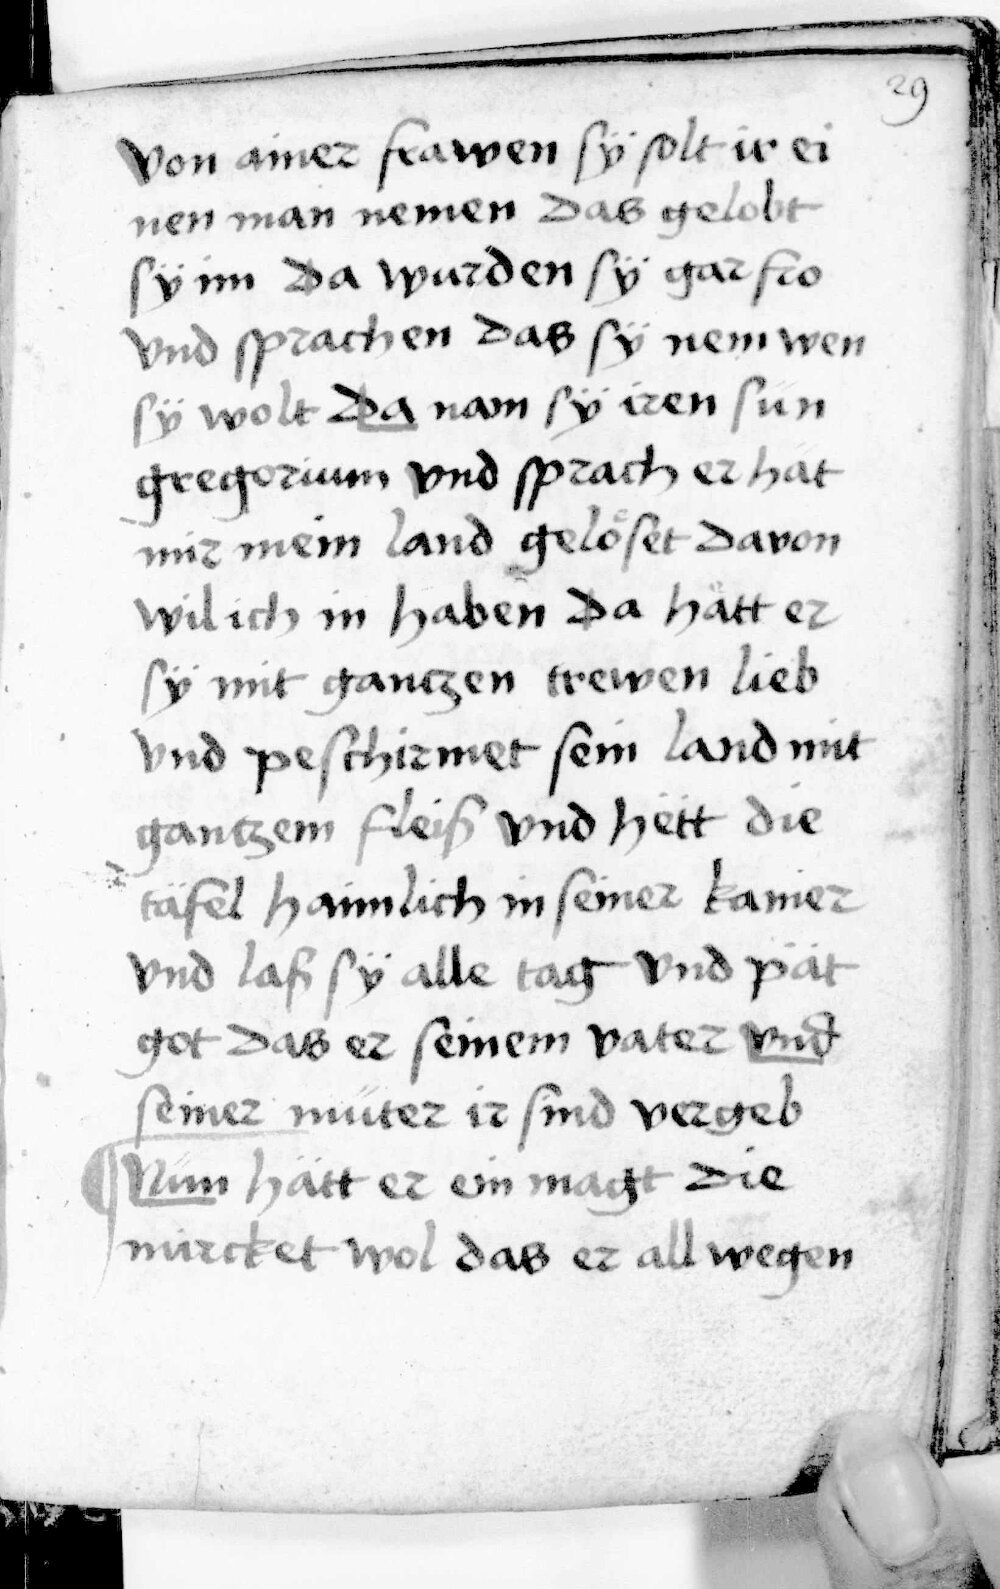 29
von ainer frawen sÿ solt ir ei
nen man nemen das gelobt
sÿ im da wurden sÿ gar fro
vnd sprachen das sÿ nem wen
sÿ wolt da nam sÿ iren sün
gregorium vnd sprach er hät
mir mein land gelöset davon
wil ich in haben da hätt er
sÿ mit gantzen trewen lieb
vnd peschirmet sein land mit
gantzem fleiß vnd hëtt die
täfel haimlich in seiner kamer
vnd laß sÿ alle tag vnd pät
got das er seinem vater vnd
seiner müter ir sind vergeb
¶ Nün hätt er ein magt die
mircket wol das er allwegen